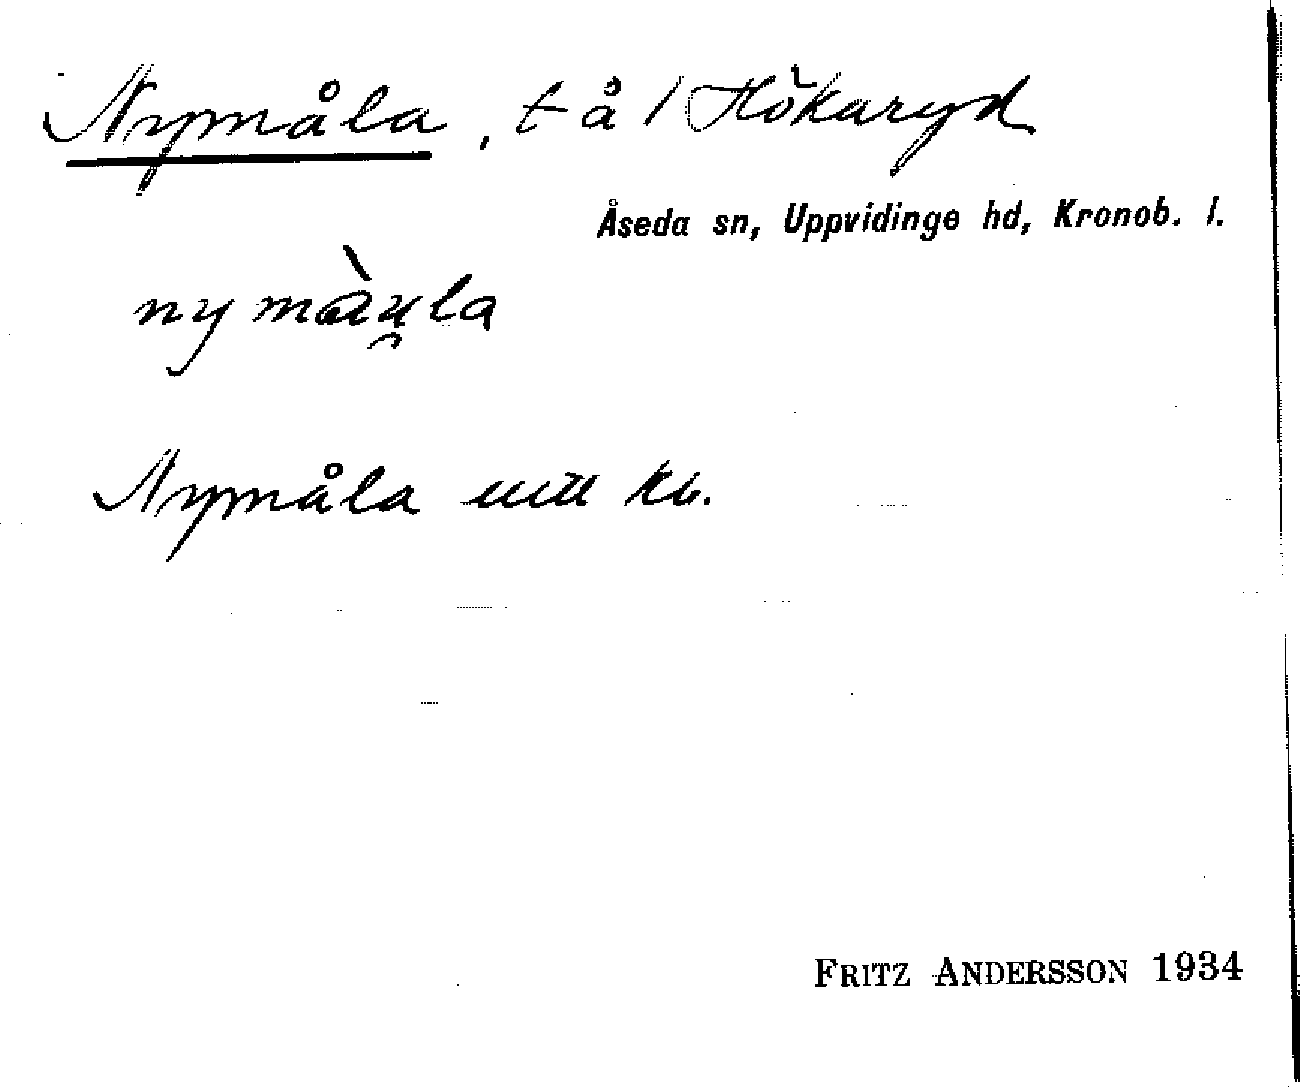 Nymåla, t å / Hökaryd
Åseda sn, Uppvidinge hd, Kronob. l.
ny màu̯la
Nymåla kb.
FRITZ ANDERSSON 1934